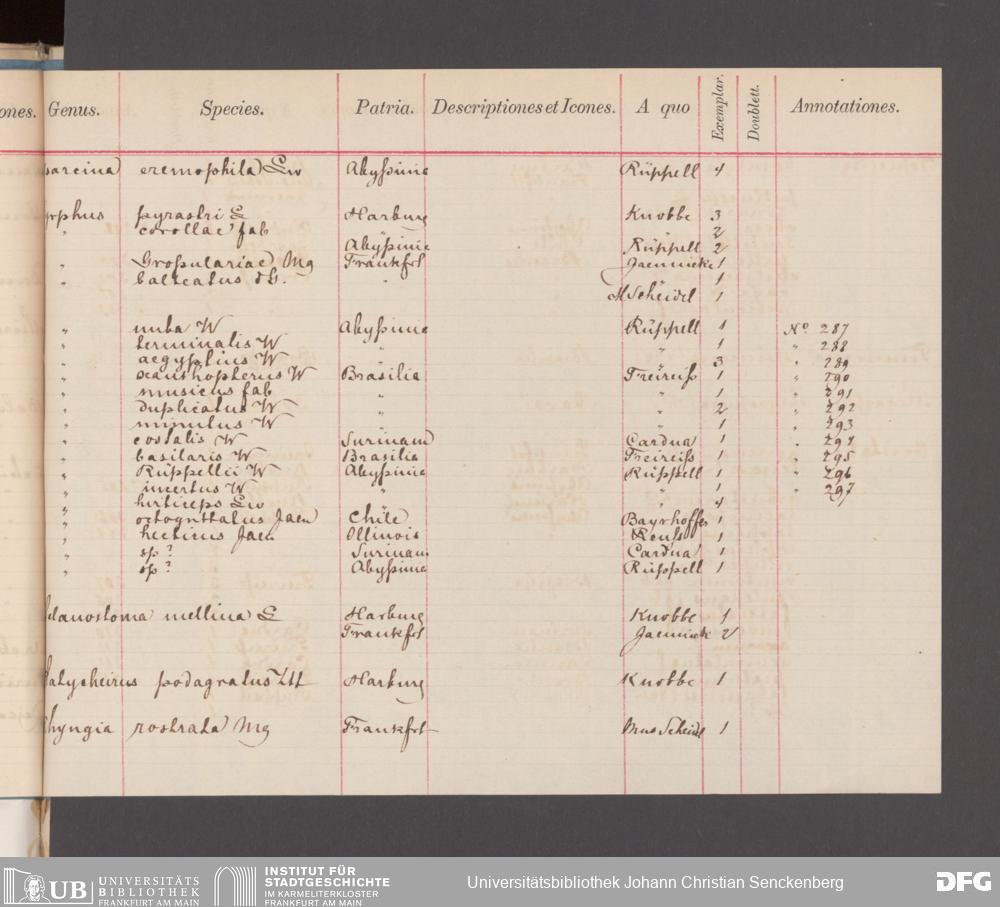 ones. Genus. Species. Patria. Descriptiones et Icones. A quo Exemplar. Doublett. Annotationes.
sarcina eremophila Lw Abyßinie Rüppell 4
yrphus pyrastri L Harburg Knobbe 3
" corollae fab " " 2
Abyßinie Rüppell 2
" Großulariae Mg Frankfrt Jaennicke 1
" balteatus dG. " " 1
M Scheidel 1
" nuba W Abyßinie Rüppell 1 No 287
" terminalis W " " 1 " 288
" aegyptius W " " 3 " 289
" xanthopterus W Brasilia Freireiß 1 " 290
" musicus fab " " 1 " 291
" duplicatus W " " 2 " 292
" minutus W " " 1 " 293
" costalis W Surinam Cardua 1 " 294
" basilaris W Brasilia Freireiß 1 " 295
" Rüppellii W Abyßinie Rüppell 1 " 296
" incertus W " " 1 " 297
" hirticeps Lw " " 4
" Jaen Chile Bayrhoffer 1
" Jaen Ollinois 1
" sp? Surinam Cardua 1
" sp? Abyßinie Rüppell 1
elanostoma mellina L Harburg Knobbe 1
Frankfrt Jaennicke 2
latycheirus podagratus Ztt Harburg Knobbe 1
hyngia rostrata Mg Frankfrt Mus Scheidel 1
UB UNIVERSITÄTS
BIBLIOTHEK
FRANKFURT AM MAIN
INSTITUT FÜR
STADTGESCHICHTE
IM KARMELITERKLOSTER
FRANKFURT AM MAIN
Universitätsbibliothek Johann Christian Senckenberg
DFG